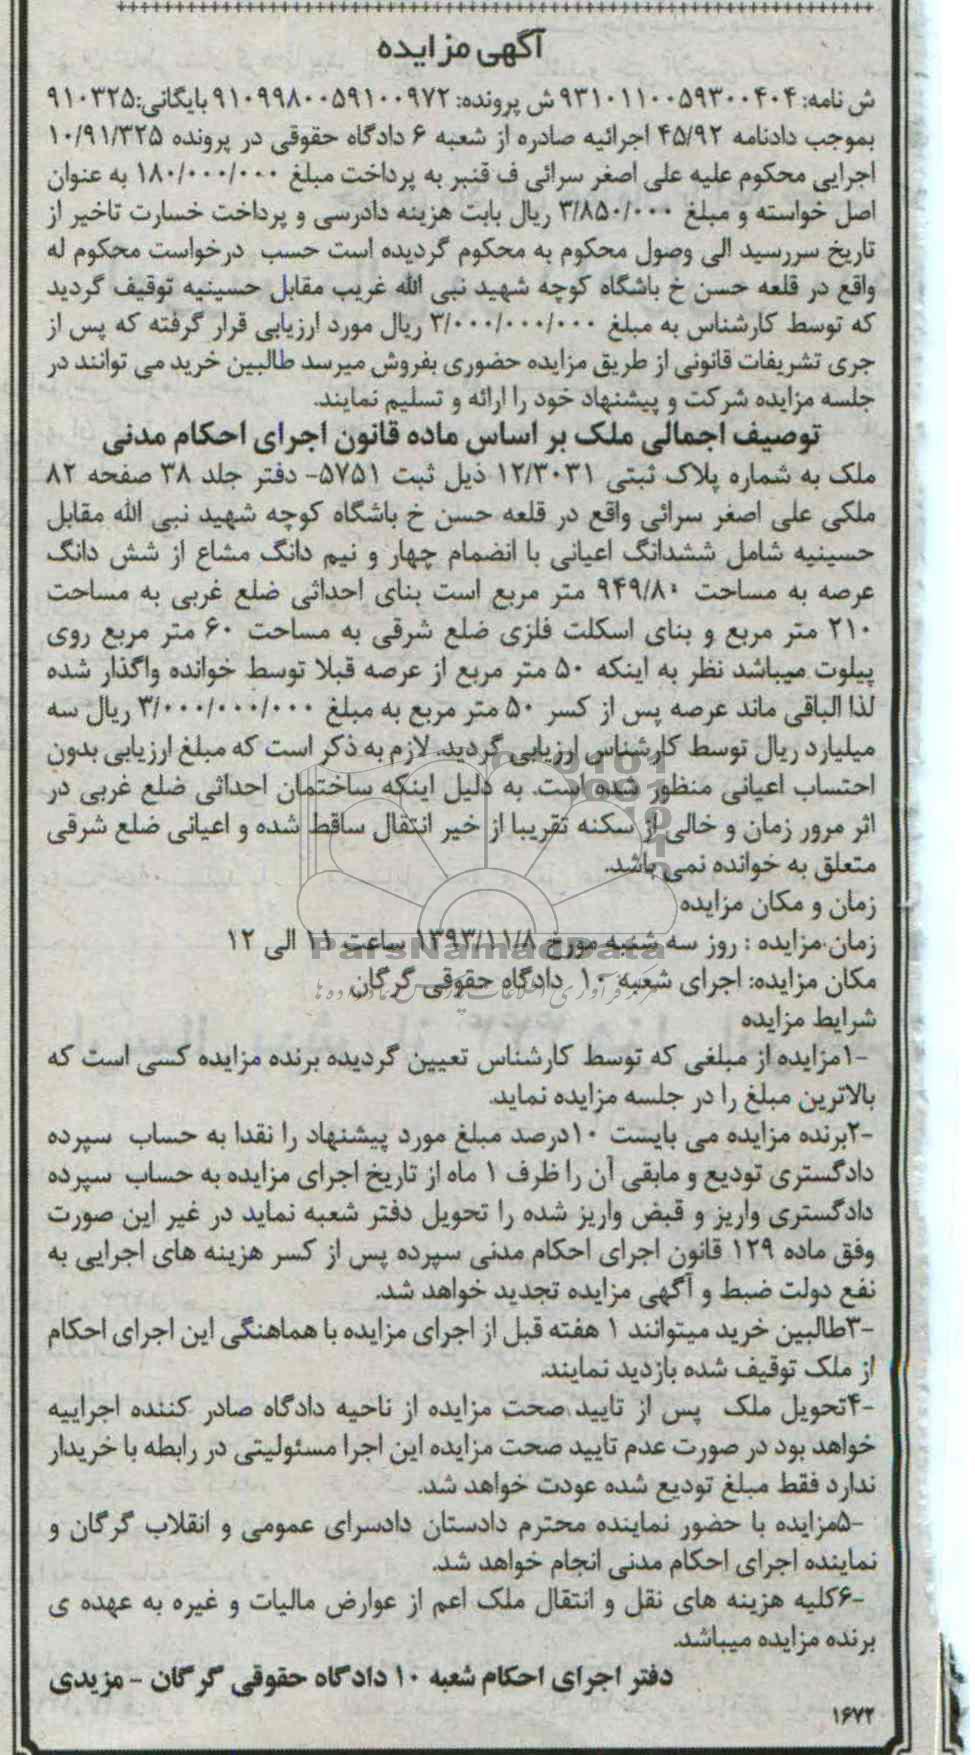 آگهی مزایده
ش نامه: ۹۳۱۰۱۱۰۰۵۹۳۰۰۴۰۴ ش پرونده: ۹۱۰۹۹۸۰۰۵۹۱۰۰۹۷۲ بایگانی:۹۱۰۳۲۵
بموجب دادنامه ۴۵/۹۲ اجرائیه صادره از شعبه ۶ دادگاه حقوقی در پرونده ۱۰/۹۱/۳۲۵
اجرایی محکوم علیه علی اصغر سرائی ف قنبر به پرداخت مبلغ ۱۸۰/۰۰۰/۰۰۰ به عنوان
اصل خواسته و مبلغ ۳/۸۵۰/۰۰۰ ریال بابت هزینه دادرسی و پرداخت خسارت تاخیر از
تاریخ سررسید الی وصول محکوم به محکوم گردیده است حسب درخواست محکوم له
واقع در قلعه حسن خ باشگاه کوچه شهید نبی الله غریب مقابل حسینیه توقیف گردید
که توسط کارشناس به مبلغ ۳/۰۰۰/۰۰۰/۰۰۰ ریال مورد ارزیابی قرار گرفته که پس از
جری تشریفات قانونی از طریق مزایده حضوری بفروش میرسد طالبین خرید می توانند در
جلسه مزایده شرکت و پیشنهاد خود را ارائه و تسلیم نمایند.
توصیف اجمالی ملک بر اساس ماده قانون اجرای احکام مدنی
ملک به شماره پلاک ثبتی ۱۲/۳۰۳۱ ذیل ثبت ۵۷۵۱- دفتر جلد ۳۸ صفحه ۸۲
ملکی علی اصغر سرائی واقع در قلعه حسن خ باشگاه کوچه شهید نبی الله مقابل
حسینیه شامل ششدانگ اعیانی با انضمام چهار و نیم دانگ مشاع از شش دانگ
عرصه به مساحت ۹۴۹/۸۰ متر مربع است بنای احداثی ضلع غربی به مساحت
۲۱۰ متر مربع و بنای اسکلت فلزی ضلع شرقی به مساحت ۶۰ متر مربع روی
پیلوت میباشد نظر به اینکه ۵۰ متر مربع از عرصه قبلا توسط خوانده واگذار شده
لذا الباقی ماند عرصه پس از کسر ۵۰ متر مربع به مبلغ ۳/۰۰۰/۰۰۰/۰۰۰ ریال سه
میلیارد ریال توسط کارشناس ارزیابی گردید. لازم به ذکر است که مبلغ ارزیابی بدون
احتساب اعیانی منظور شده است. به دلیل اینکه ساختمان احداثی ضلع غربی در
اثر مرور زمان و خالی از سکنه تقریبا از خیر انتقال ساقط شده و اعیانی ضلع شرقی
متعلق به خوانده نمی باشد.
زمان و مکان مزایده
زمان مزایده : روز سه شنبه مورخ ۱۳۹۳/۱۱/۸ ساعت ۱۱ الی ۱۲
ParsNamadData
مکان مزایده: اجرای شعبه ۱۰ دادگاه حقوقی گرگان
شرایط مزایده
-۱مزایده از مبلغی که توسط کارشناس تعیین گردیده برنده مزایده کسی است که
بالاترین مبلغ را در جلسه مزایده نماید.
-۲برنده مزایده می بایست ۱۰درصد مبلغ مورد پیشنهاد را نقدا به حساب سپرده
دادگستری تودیع و مابقی آن را ظرف ۱ ماه از تاریخ اجرای مزایده به حساب سپرده
دادگستری واریز و قبض واریز شده را تحویل دفتر شعبه نماید در غیر این صورت
وفق ماده ۱۲۹ قانون اجرای احکام مدنی سپرده پس از کسر هزینه های اجرایی به
نفع دولت ضبط و آگهی مزایده تجدید خواهد شد.
-۳طالبین خرید میتوانند ۱ هفته قبل از اجرای مزایده با هماهنگی این اجرای احکام
از ملک توقیف شده بازدید نمایند.
-۴تحویل ملک پس از تایید صحت مزایده از ناحیه دادگاه صادر کننده اجراییه
خواهد بود در صورت عدم تایید صحت مزایده این اجرا مسئولیتی در رابطه با خریدار
ندارد فقط مبلغ تودیع شده عودت خواهد شد.
-۵مزایده با حضور نماینده محترم دادستان دادسرای عمومی و انقلاب گرگان و
نماینده اجرای احکام مدنی انجام خواهد شد.
-۶کلیه هزینه های نقل و انتقال ملک اعم از عوارض مالیات و غیره به عهده ی
برنده مزایده میباشد.
دفتر اجرای احکام شعبه ۱۰ دادگاه حقوقی گرگان - مزیدی
۱۶۷۲